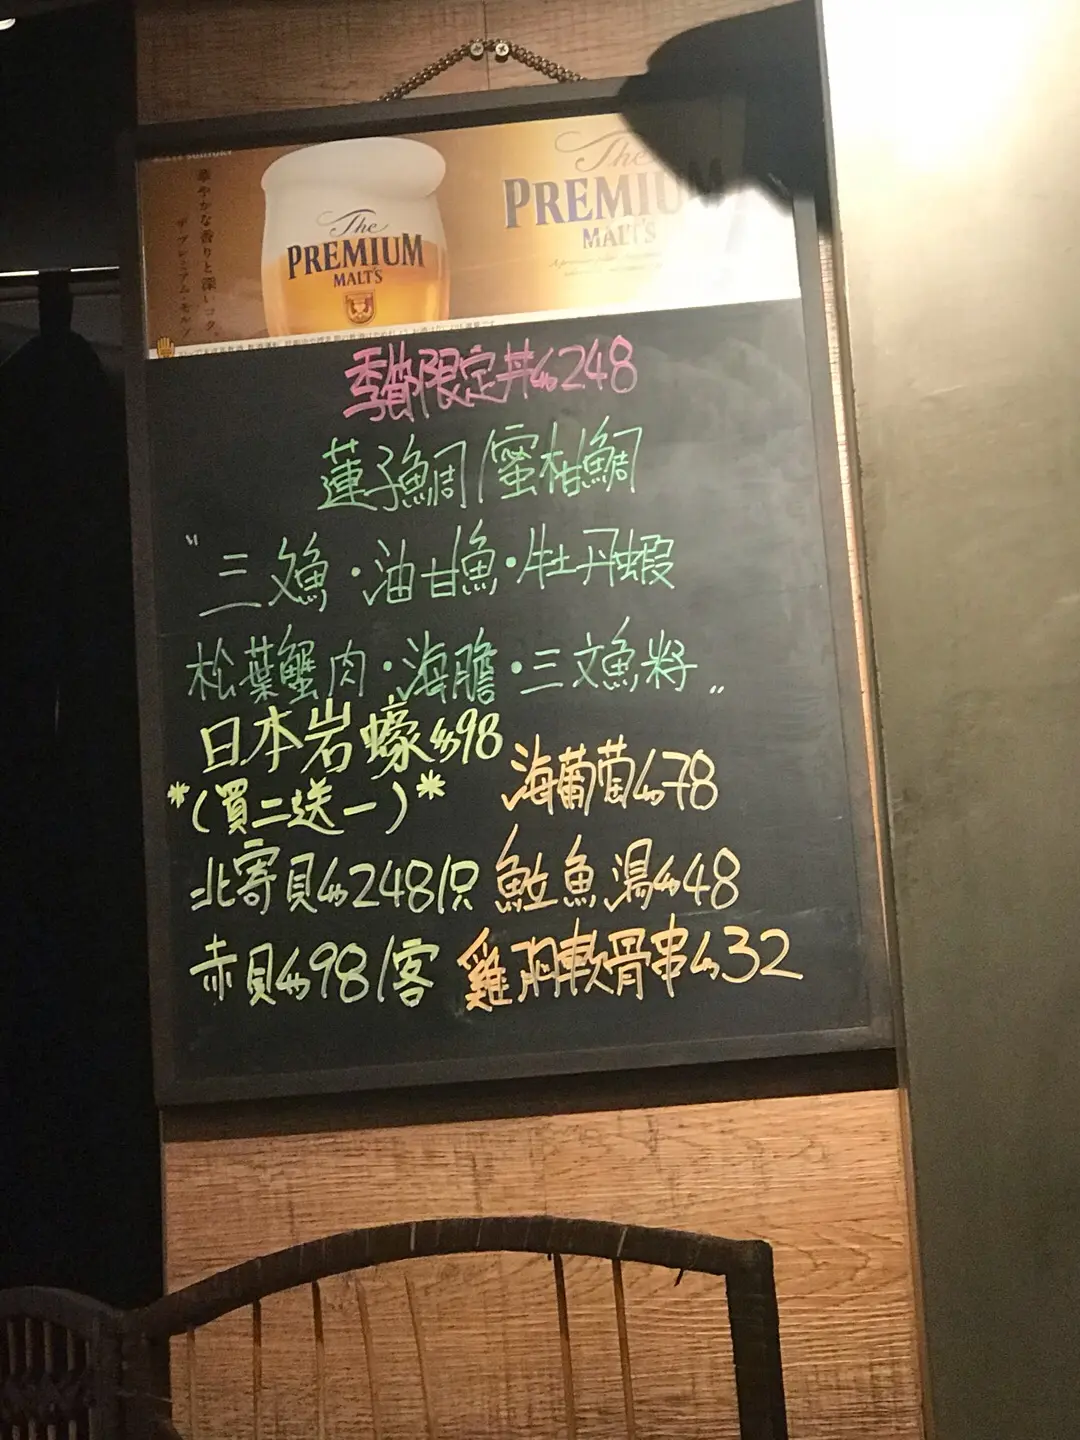 華やかな香りと深いコク。
ザ・プレミアム・モルツ
The
PREMIUM
MALT'S
The
PREMIUM
MALT'S
季節限定丼$248
蓮子鯛/蜜柑鯛
"三文魚・油甘魚・牡丹蝦
松葉蟹肉・海膽・三文魚籽"
日本岩蠔$98
*(買二送一)*
海葡萄$78
北寄貝$248/只
魚湯$48
赤貝$98/客
雞軟骨串$32